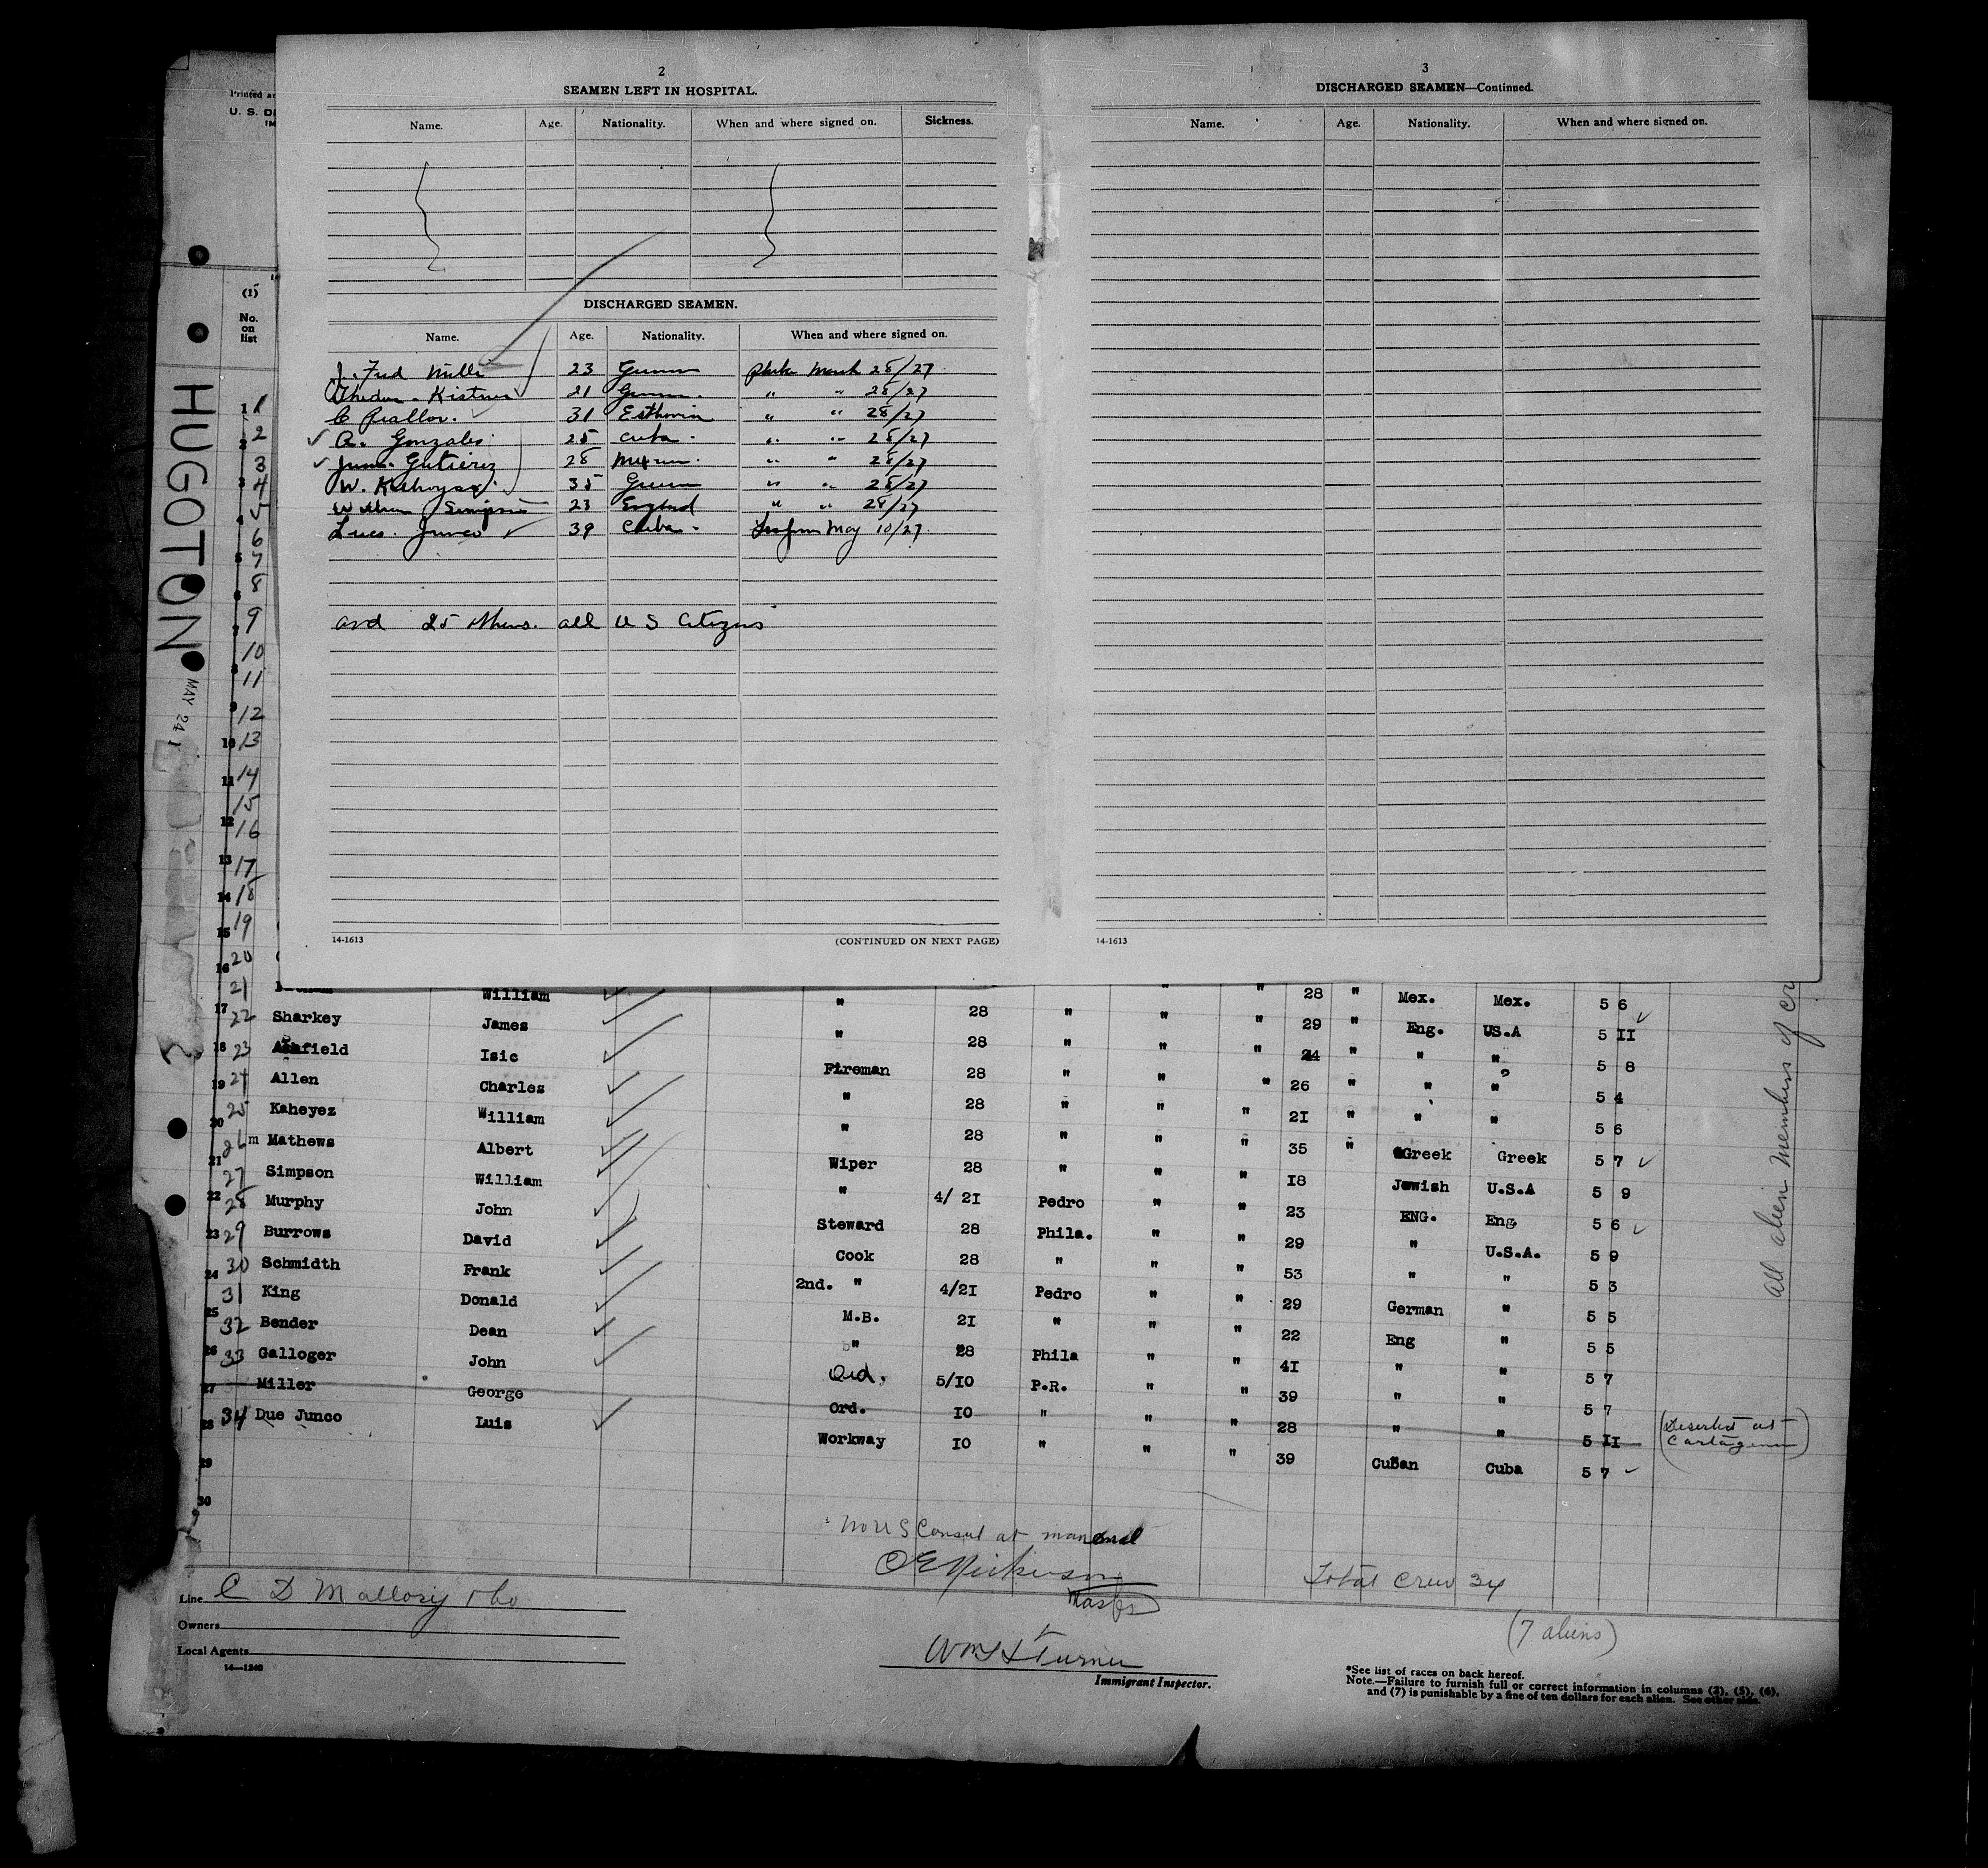 2
SEAMEN LEFT IN HOSPITAL.
Name. Age. Nationality. When and where signed on. Sickness.
DISCHARGED SEAMEN.
Name. Age. Nationality. When and where signed on.
J. Fred Mille 23 March 28/27
Kistner 21 " " 28/27
C 31 Esthonia " " 28/27
A. Gonzales 25 Cuba. " " 28/27
Gutierez 28 " " 28/27
W. 35 " " 28/27
Simpson 23 England " " 28/27
Junco 39 Cuba. May 10/27
and 25 others. all U S Citizens
14-1613 (CONTINUED ON NEXT PAGE)
3
DISCHARGED SEAMEN—Continued.
Name. Age. Nationality. When and where signed on.
14-1613
Printed
U. S. D
IM
(1)
No.
on
list
HUGOTON
MAY 24 1
1 1
2 2
3
3 4
4 5
6
5 7
6 8
7 9
8 10
11
9 12
10 13
11 14
15
12 16
13 17
14 18
15 19
16 20
21 William " 28 " " " 28 " Mex. Mex. 5 6
17 22 Sharkey James " 28 " " " 29 " Eng. US.A 5 11
18 23 Ashfield Isic Fireman 28 " " " 24 " " " 5 8
19 24 Allen Charles " 28 " " " 26 " " " 5 4
20 25 Kaheyez William " 28 " " " 21 " " " 5 6
21 26 m Mathews Albert Wiper 28 " " " 35 " Greek Greek 5 7
27 Simpson William " 4/ 21 Pedro " " 18 Jewish U.S.A 5 9
22 28 Murphy John Steward 28 Phila. " " 23 ENG. Eng. 5 6
23 29 Burrows David Cook 28 " " " 29 " U.S.A. 5 9
24 30 Schmidth Frank 2nd. " 4/21 Pedro " " 53 " " 5 3
25 31 King Donald M.B. 21 " " " 29 German " 5 5
26 32 Bender Dean " 28 Phila " " 22 Eng " 5 5
33 Galloger John Ord. 5/10 P.R. " " 41 " " 5 7
27 Miller George Ord. 10 " " " 39 " " 5 7
28 34 Due Junco Luis Workway 10 " " " 28 " " 5 11 (Deserted at Cartagena)
29 39 Cuban Cuba 5 7
30
All alien members of cr
No U S Consul at
Master
Total Crew 34
(7 aliens)
Line C D Mallory & Co
Owners
Local Agents
14—1240
Wm Turner
Immigrant Inspector.
*See list of races on back hereof.
Note.—Failure to furnish full or correct information in columns (2), (5), (6),
and (7) is punishable by a fine of ten dollars for each alien. See other side.